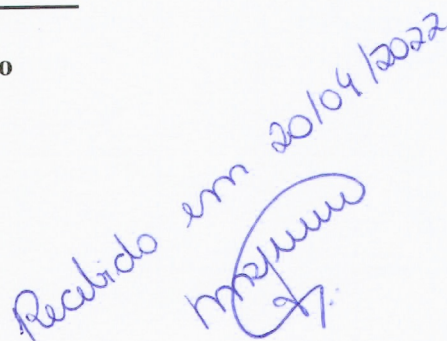 o
Recebido em 20/04/2022